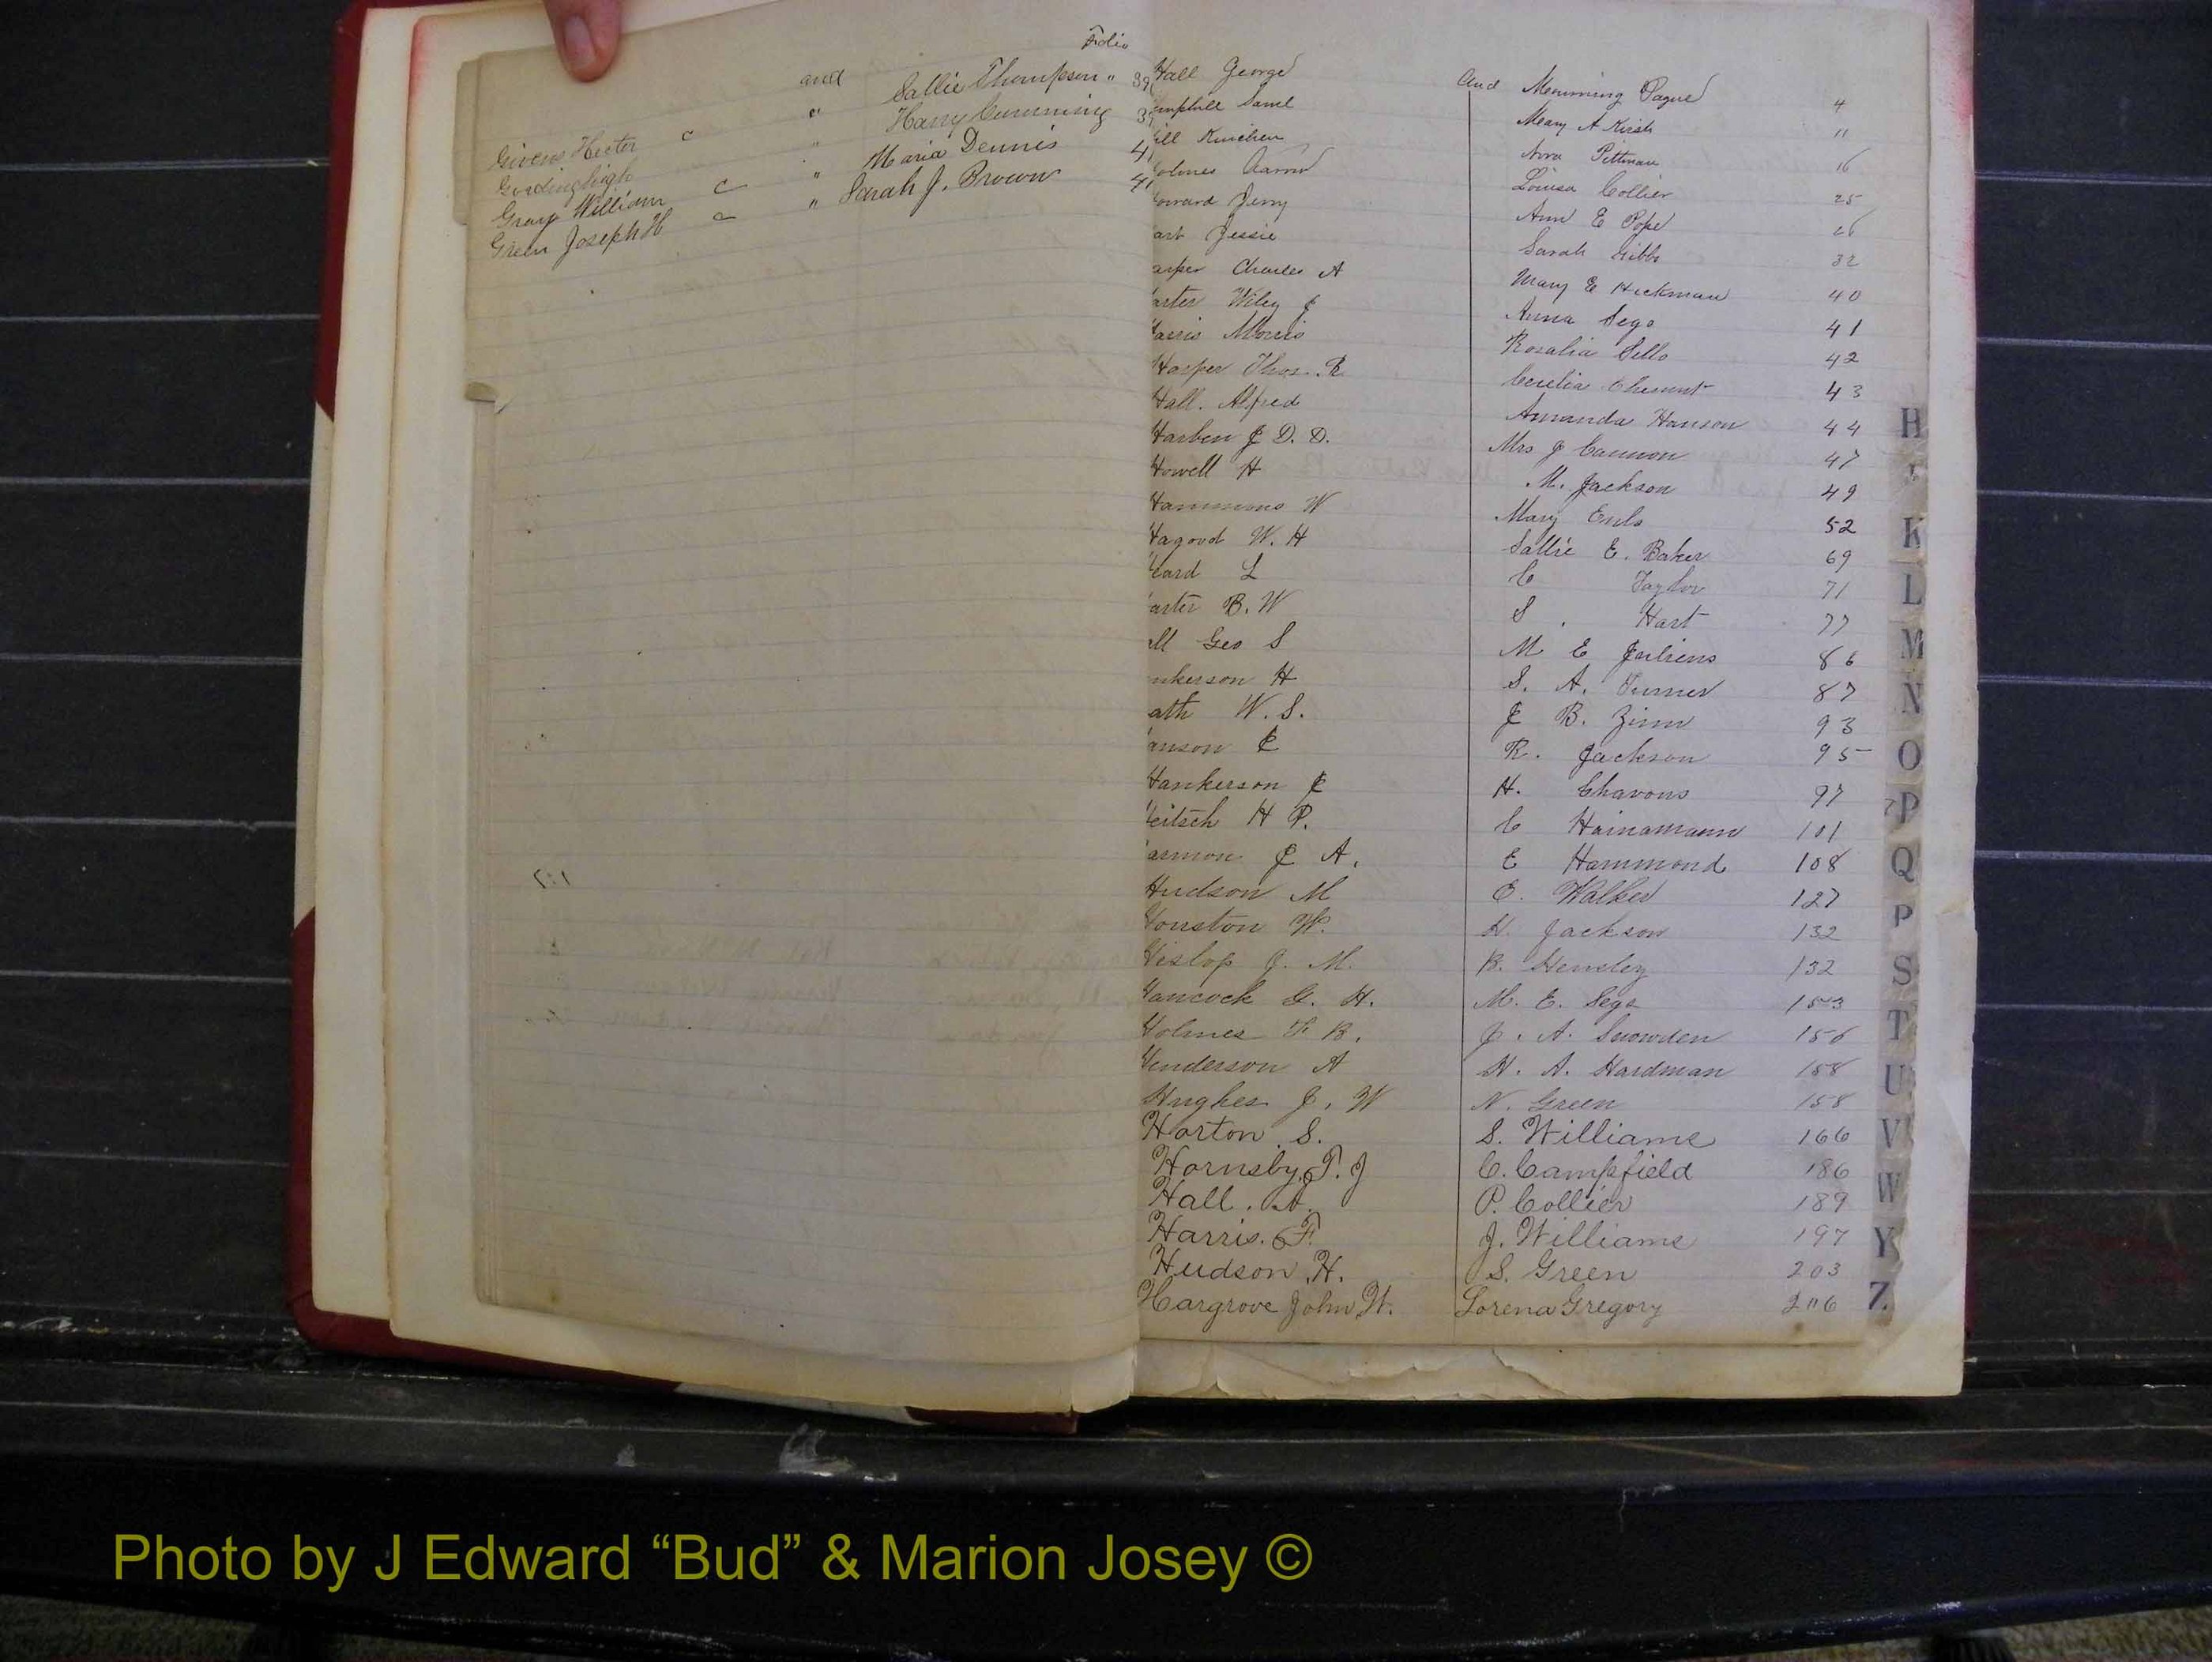 Folio
Givens Hector c and Sallie Thompson " 39
" Harry Cumming
Gray William c " Maria Dennis 41
Green Joseph H c " Sarah J. Brown 41
Hall George and Mourning 4
Saml Mary A Kirsh 11
ill Kinchen Nora Pittman 16
olmes Aaron Louisa Collier 25
oward Jerry Ann E Pope 26
art Jessie Sarah Gibbs 32
arper Charles A Mary E Hickman 40
arter Wiley J Anna Sego 41
arris Morris Rosalia Sello 42
Harper Thos. R 43
Hall. Alfred Amanda Hanson 44
Harben J D. D. Mrs J Cannon 47
Howell H M. Jackson 49
Hammons W Mary 52
Hagood W. H Sallie E. Baker 69
eard L C Taylor 71
arter B. W S. Hart 77
all Geo S M E 86
nkerson H S. A. Turner 87
ath W. S. J B. Zinn 93
anson J R. Jackson 95
Hankerson J H. Chavous 97
eitsch H P. C Hainamann 101
armon J A. E Hammond 108
Hudson M E. Walker 127
Houston W. H. Jackson 132
Hislop J. M. B. Hensley 132
Hancock G. H. M. E. Sego 153
Holmes F B. J. A. Snowden 156
Henderson A H. A. Hardman 158
Hughes J. W N. Green 158
Horton S. S. Williams 166
Hornsby, T. J C. Campfield 186
Hall. A. P. Collier 189
Harris. F. J. Williams 197
Hudson, H. S. Green 203
Hargrove John W. Lorena Gregory 206
H
K
L
M
N
O
P
Q
S
T
U
V
W
Y
Z
Photo by J Edward “Bud” & Marion Josey ©